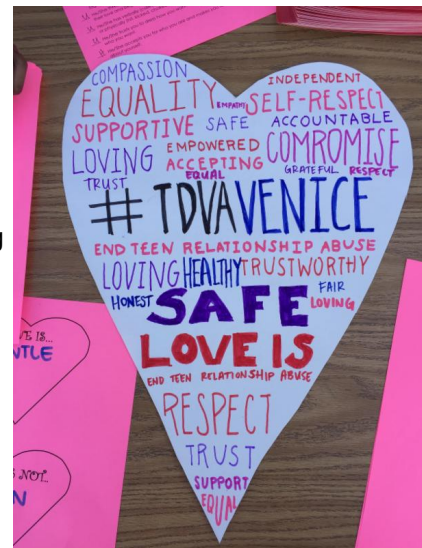 COMPASSION
INDEPENDENT
EQUALITY EMPATHY SELF-RESPECT
SUPPORTIVE SAFE ACCOUNTABLE
LOVING EMPOWERED COMROMISE
ACCEPTING
TRUST EQUAL GRATEFUL RESPECT
# TDVAVENICE
END TEEN RELATIONSHIP ABUSE
LOVING HEALTHY TRUSTWORTHY
HONEST SAFE FAIR
LOVING
LOVE IS
END TEEN RELATIONSHIP ABUSE
RESPECT
TRUST
SUPPORT
EQUAL
IS...
NOT...